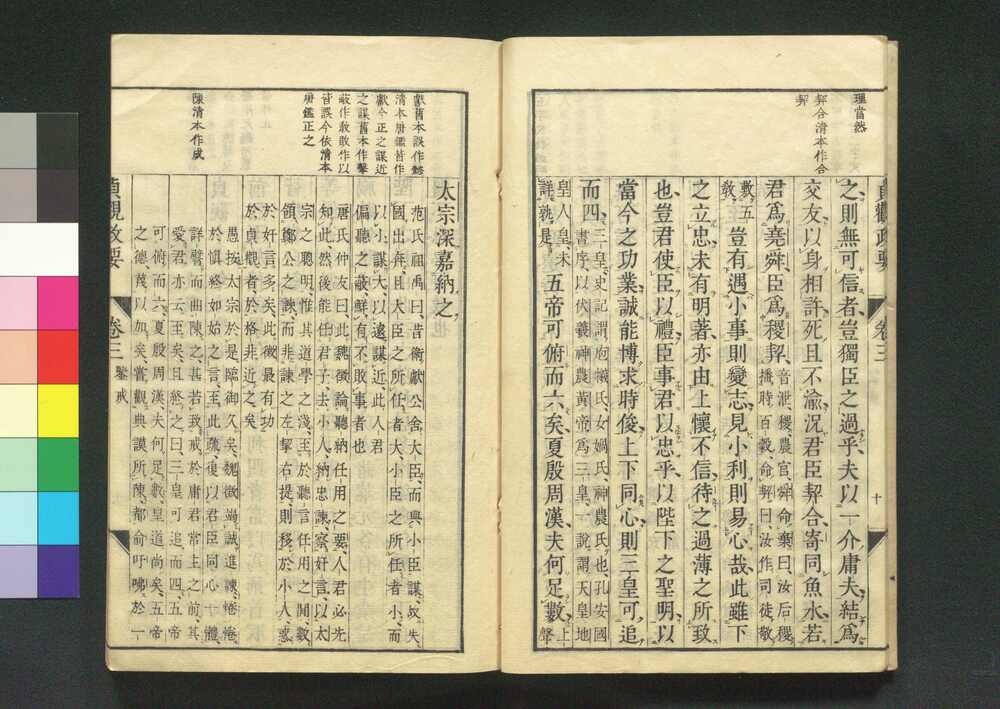 理當然
契合清本作合
契
之則無可信者豈獨臣之過乎夫以一介庸夫結爲
交友以身相許死且不渝況君臣契合寄同魚水若
君爲堯舜臣爲稷契音泄稷農官舜命棄曰汝后稷
播時百穀命契曰汝作司徒敬
敷五
敎豈有遇小事則變志見小利則易心哉此雖下
之立忠未有明著亦由上懷不信待之過薄之所致
也豈君使臣以禮臣事君以忠乎以陛下之聖明以
當今之功業誠能博求時俊上下同心則三皇可追
而四三皇史記謂庖犧氏女媧氏神農氏也孔安國
書序以伏羲神農黃帝爲三皇一說謂天皇地
皇人皇未
詳孰是五帝可俯而六矣夏殷周漢夫何足數上
聲
貞觀政要
卷三
十
獻舊本誤作
清本唐鑑皆作
獻今正之謀近
之謀舊本作
皆誤今依清本
唐鑑正之
陳清本作成
太宗深嘉納之
范氏祖禹曰昔衞獻公舍大臣而與小臣謀故失
國出奔且大臣之所任者大小臣之所任者小而
以小謀大以遠謀近此人君
偏聽之蔽鮮有不敗事者也
唐氏仲友曰此魏徵論聽納任用之要人君必先
知此然後能任君子去小人納忠諫察奸言以太
宗之聰明惟其道學之淺至於聽言任用之間數
領鄭公之諫而非諫之左挈右提則移於小人惑
於奸言多矣此徵最有功
於貞觀者於格非近之矣
愚按太宗於是臨御久矣魏徵竭誠進諫惓惓
於愼終如始之言至此疏復以君臣同心一體
詳譬而曲陳之甚若致戒於庸君常主之前其
愛君亦云至矣且終之曰三皇可追而四五帝
可俯而六夏殷周漢夫何足數皇道尚矣五帝
之德蔑以加矣嘗觀典謨所陳都俞吁咈於一
貞觀政要
卷三
鑒戒